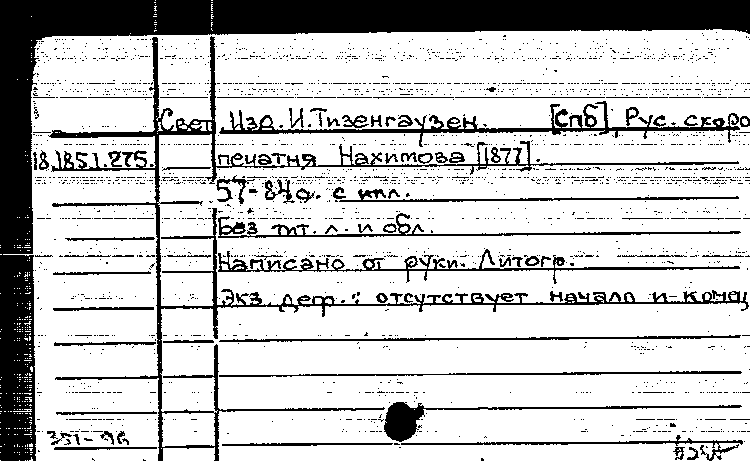 Свет. Изд. И. Тизенгаузен. [Спб], Рус. скоро
18.185.1.275. печатня Нахимова, [1877].
57-84 с. с илл.
Без тит. л. и обл.
Написано от руки. Литогр.
Экз. деф.: отсутствует начало и конец
351-96